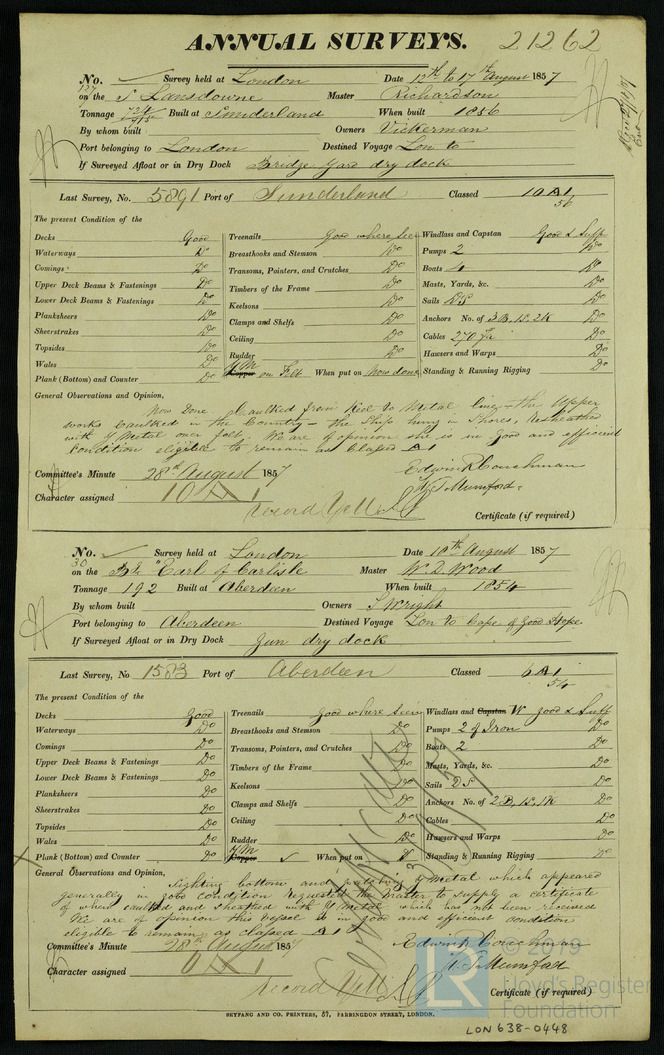 ANNUAL SURVEYS. 21262
No. Survey held at London Date 12th to 17th August 1857
127 on the S Lansdowne Master Richardson
Tonnage 724/715 Built at Sunderland When built 1856
By whom built Owners Vickerman
Port belonging to London Destined Voyage Lon to
If Surveyed Afloat or in Dry Dock Bridge Yard dry dock
Last Survey, No. 5891 Port of Sunderland Classed 10 A1
56
The present Condition of the
Decks Good Treenails Good where seen Windlass and Capstan Good & Suff
Waterways Do Breasthooks and Stemson Do Pumps 2 Do
Comings Do Transoms, Pointers, and Crutches Do Boats 4 Do
Upper Deck Beams & Fastenings Do Timbers of the Frame Do Masts, Yards, &c. Do
Lower Deck Beams & Fastenings Do Keelsons Do Sails Do
Planksheers Do Clamps and Shelfs Do Anchors No. of 3B, 1S, 2K Do
Sheerstrakes Do Ceiling Do Cables 270 Fm Do
Topsides Do Rudder Do Hawsers and Warps Do
Wales Do Copper YM on Felt When put on Now done Standing & Running Rigging Do
Plank (Bottom) and Counter Do
General Observations and Opinion,
Now Done Caulked from Keel to Metal line, the Upper
works Caulked in the Country the Ship hung in Shores, Resheathed
with Y Metal over felt. We are of opinion she is in Good and efficient
Condition eligible to remain as Classed A1
Committee's Minute 28th August 1857 Edwin R Couchman
Character assigned 10 A 1 W. J. Mumford
Record YM Certificate (if required)
No. Survey held at London Date 10th August 1857
30 on the Bk "Earl of Carlisle Master W. D. Wood
Tonnage 192 Built at Aberdeen When built 1854
By whom built Owners J Wright
Port belonging to Aberdeen Destined Voyage Lon to Cape of Good Hope
If Surveyed Afloat or in Dry Dock Gun dry dock
Last Survey, No 1583 Port of Aberdeen Classed 6 A1
54
The present Condition of the
Decks Good Treenails Good where seen Windlass and Capstan W good & Suff
Waterways Do Breasthooks and Stemson Do Pumps 2 of Iron Do
Comings Do Transoms, Pointers, and Crutches Do Boats 2 Do
Upper Deck Beams & Fastenings Do Timbers of the Frame Do Masts, Yards, &c. Do
Lower Deck Beams & Fastenings Do Keelsons Do Sails 2S Do
Planksheers Do Clamps and Shelfs Do Anchors No. of 2B, 1S, 1K Do
Sheerstrakes Do Ceiling Do Cables Do
Topsides Do Rudder Do Hawsers and Warps Do
Wales Do Copper YM When put on Standing & Running Rigging Do
Plank (Bottom) and Counter Do
General Observations and Opinion,
Sighting bottom and Y Metal which appeared
generally in good condition Requested the Master to supply a certificate
of when caulked and sheathed with Y Metal which has not been received
We are of opinion this vessel is in good and efficient condition
eligible to remain as classed A1
Committee's Minute 28th August 1857 Edwin R Couchman
Character assigned 6 A 1 W. J. Mumford
Record YM Certificate (if required)
SEYFANG AND CO. PRINTERS, 57, FARRINGDON STREET, LONDON.
LON 638-0448
LR © 2019
Lloyd's Register
Foundation